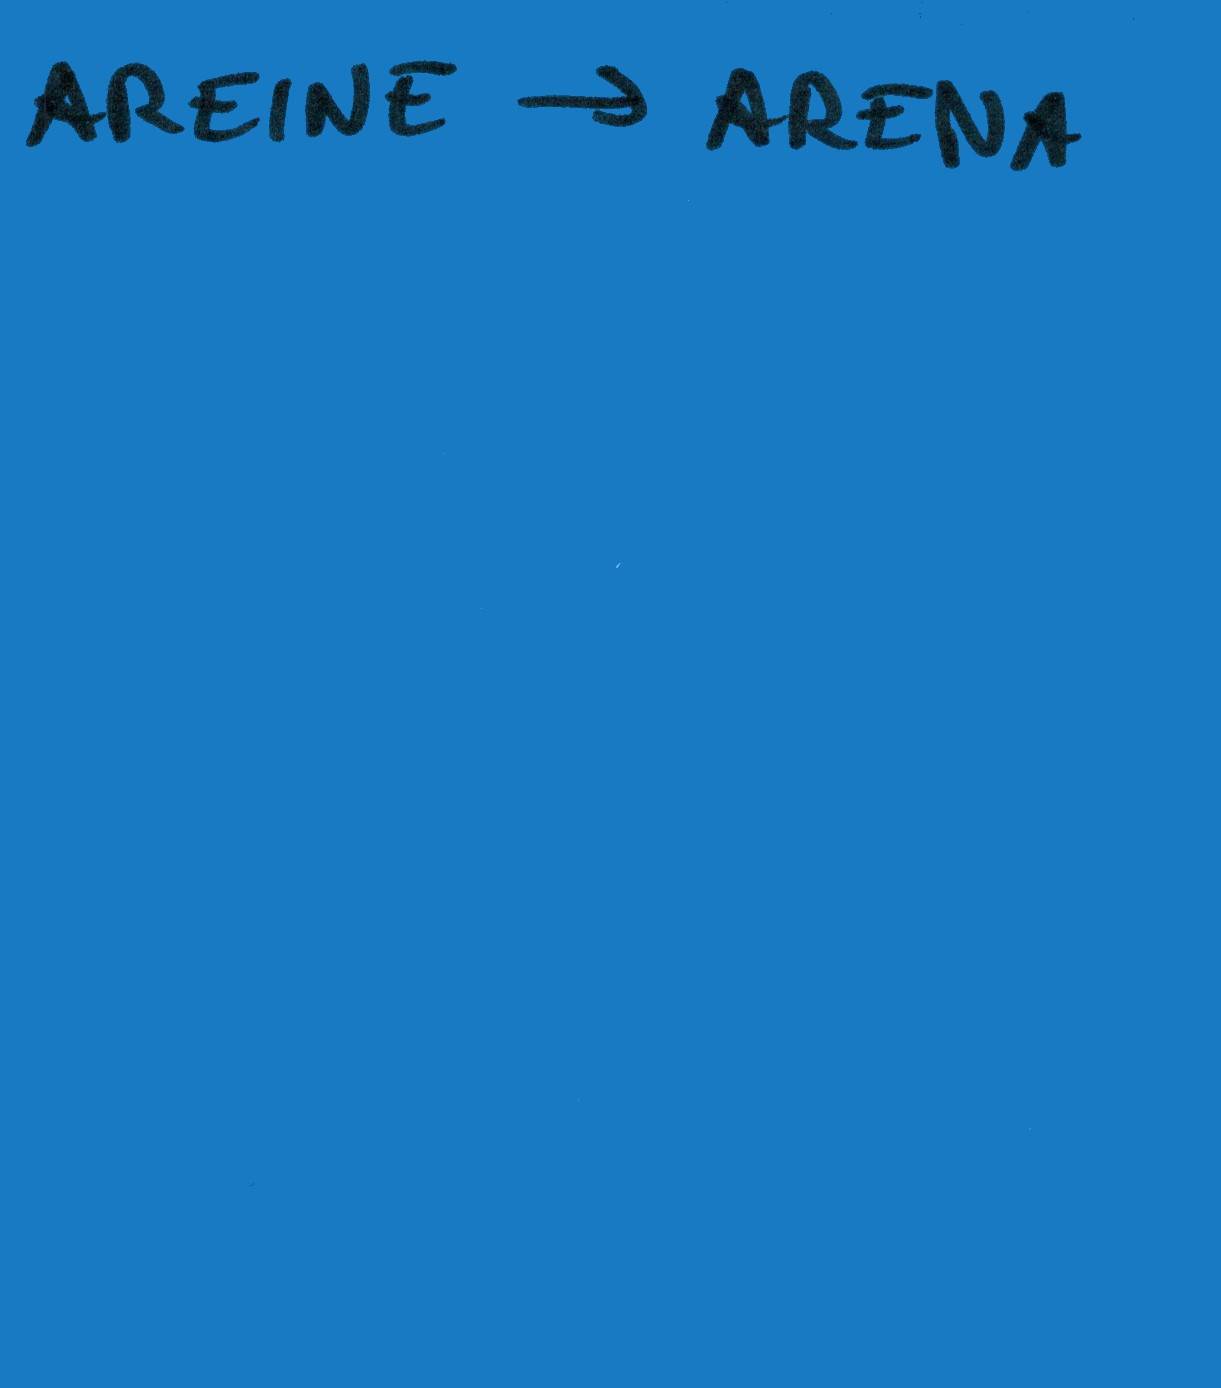 AREINE → ARENA